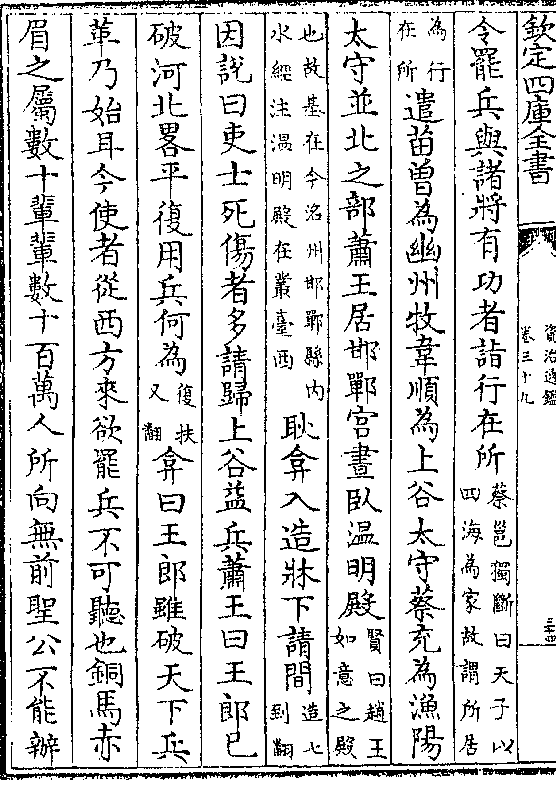 欽定四庫全書
資治通鑑
卷三十九
三十四
令罷兵與諸將有功者詣行在所蔡邕獨斷曰天子以四海為家故謂所居
為行在所遣苗曾為幽州牧韋順為上谷太守蔡充為漁陽
太守並北之部蕭王居邯鄲宫晝卧温明殿賢曰趙王如意之殿
也故基在今洺州邯鄲縣内水經注温明殿在叢臺西耿弇入造牀下請間造七到翻
因説曰吏士死傷者多請歸上谷益兵蕭王曰王郎已
破河北畧平復用兵何為復扶又翻弇曰王郎雖破天下兵
革乃始耳今使者從西方來欲罷兵不可聽也銅馬赤
眉之屬數十輩輩數十百萬人所向無前聖公不能辦